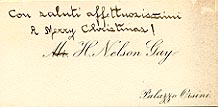 Con saluti affettuosissimi
& Merry Christmas!
Mr. H. Nelson Gay
Palazzo Orsini